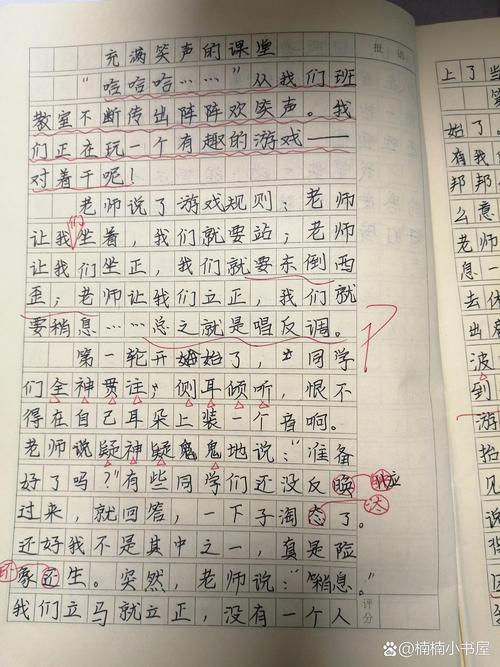 充满笑声的课堂
批语
“哈哈哈……”从我们班
教室不断传出阵阵欢笑声。我
们正在玩一个有趣的游戏——
对着干呢！
老师说了游戏规则：老师
们
让我坐着，我们就要站；老师
让我们坐正，我们就要东倒西
歪；老师让我们立正，我们就
要稍息……总之就是唱反调。
第一轮开始了，同学
们全神贯注，侧耳倾听，恨不
得在自己耳朵上装一个音响。
老师说疑神疑鬼鬼地说：“准备
好了吗？”有些同学们还没反
应
过来，就回答，一下子淘态了。
汰
还好我不是其中之一，真是险
象还生。突然，老师说：“稍息。”
环
我们立马就立正，没有一个人
评分
上了当
始了
有我们
邦邦
么意
老师
息一
去休
出
波
到
游
抬
见
背
@楠楠小书屋